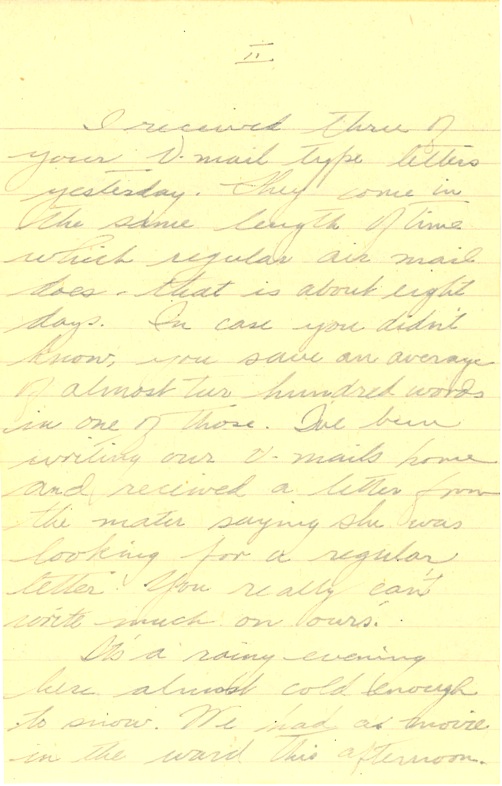 II
I received three of
your V-mail type letters
yesterday. They come in
the same length of time
which regular air mail
does - that is about eight
days. In case you didn't
know, you save an average
of almost two hundred words
in one of those. I've been
writing our V-mails home
and received a letter from
the mater saying she was
looking for a regular
letter. You really can't
write much on ours.
It's a rainy evening
here almost cold enough
to snow. We had a movie
in the ward this afternoon.